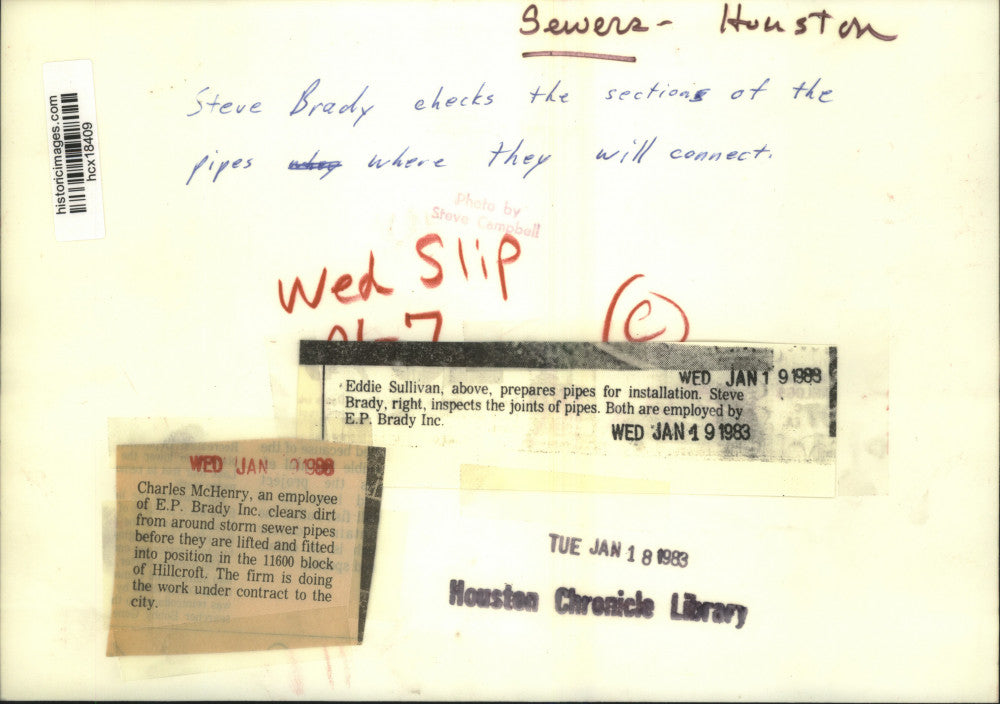 Sewers - Houston
historicimages.com
hcx18409
Steve Brady checks the sections of the
pipes where they will connect.
Photo by
Steve Campbell
Wed Slip
C
WED JAN 19 1983
Eddie Sullivan, above, prepares pipes for installation. Steve
Brady, right, inspects the joints of pipes. Both are employed by
E.P. Brady Inc.
WED JAN 19 1983
WED JAN
Charles McHenry, an employee
of E.P. Brady Inc. clears dirt
from around storm sewer pipes
before they are lifted and fitted
into position in the 11600 block
of Hillcroft. The firm is doing
the work under contract to the
city.
TUE JAN 18 1983
Houston Chronicle Library